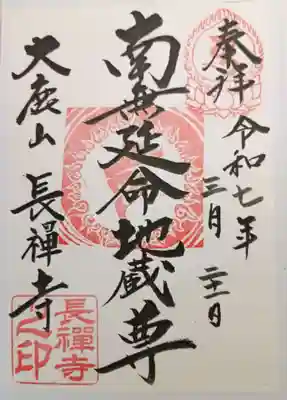 奉拝
令和七年
三月二十二日
南無延命地蔵尊
大鹿山
長禅寺
長禪寺
之印